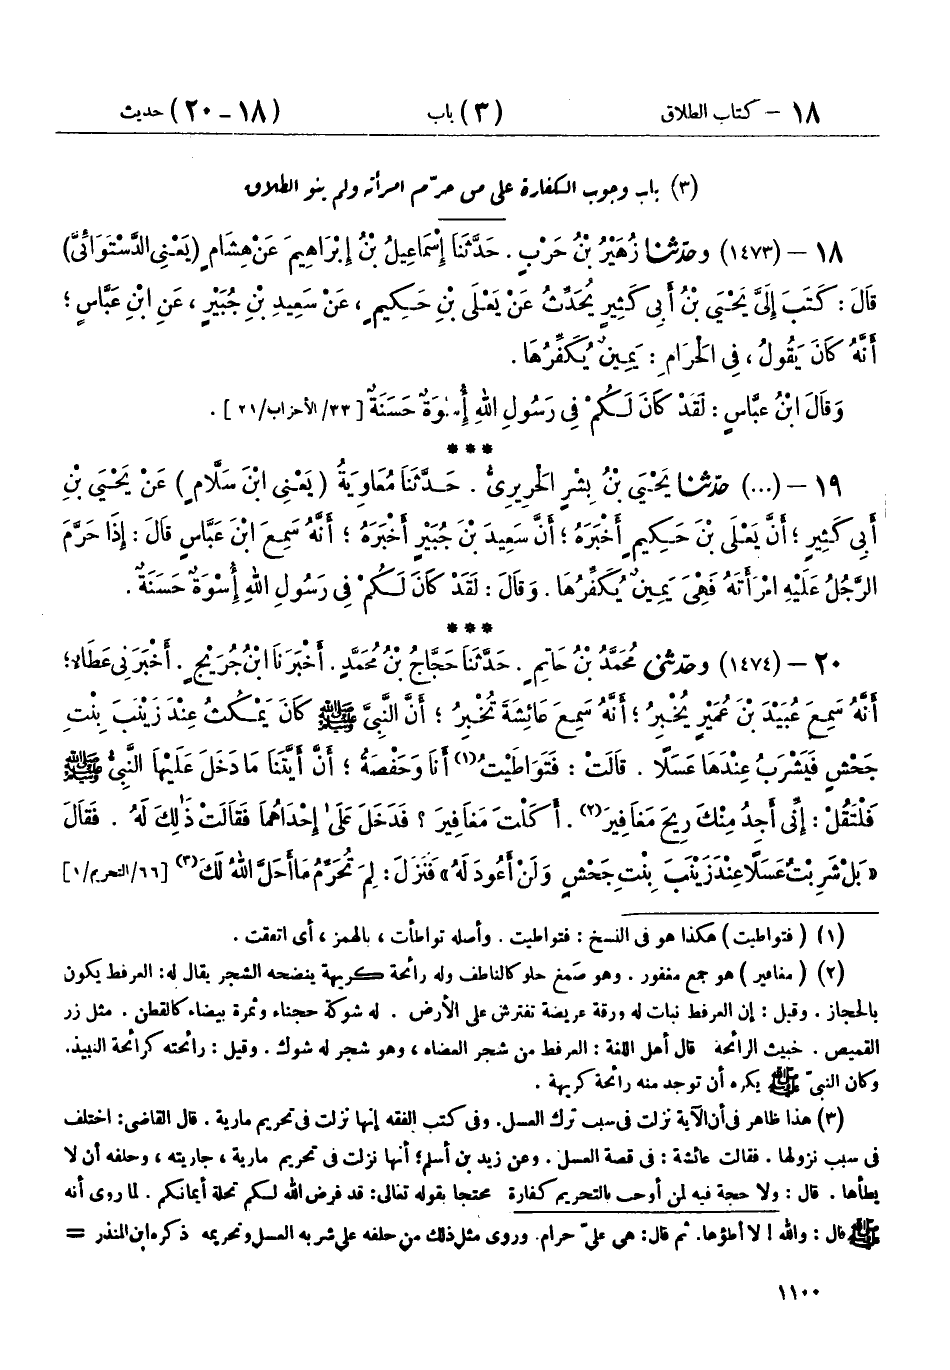 ١٨ – كتاب الطلاق (٣) باب (١٨ – ٢٠) حديث
(٣) باب وجوب الكفارة على من حرّم امرأته ولم ينو الطلاق
١٨ – (١٤٧٣) وحدثنا زُهَيْرُ بْنُ حَرْبٍ . حَدَّثَنَا إِسْمَاعِيلُ بْنُ إِبْرَاهِيمَ عَنْ هِشَامٍ (يَعْنِي الدَّسْتَوَائِيَّ)
قَالَ : كَتَبَ إِلَيَّ يَحْيَى بْنُ أَبِي كَثِيرٍ يُحَدِّثُ عَنْ يَعْلَى بْنِ حَكِيمٍ ، عَنْ سَعِيدِ بْنِ جُبَيْرٍ ، عَنِ ابْنِ عَبَّاسٍ ؛
أَنَّهُ كَانَ يَقُولُ ، فِي الْحَرَامِ : يَمِينٌ يُكَفِّرُهَا .
وَقَالَ ابْنُ عَبَّاسٍ : لَقَدْ كَانَ لَكُمْ فِي رَسُولِ اللهِ أُسْوَةٌ حَسَنَةٌ [ ٣٣/ الأحزاب/ ٢١ ] .
***
١٩ – (...) حدثنا يَحْيَى بْنُ بِشْرٍ الْحَرِيرِيُّ . حَدَّثَنَا مُعَاوِيَةُ ( يَعْنِي ابْنَ سَلَّامٍ ) عَنْ يَحْيَى بْنِ
أَبِي كَثِيرٍ ؛ أَنَّ يَعْلَى بْنَ حَكِيمٍ أَخْبَرَهُ ؛ أَنَّ سَعِيدَ بْنَ جُبَيْرٍ أَخْبَرَهُ ؛ أَنَّهُ سَمِعَ ابْنَ عَبَّاسٍ قَالَ : إِذَا حَرَّمَ
الرَّجُلُ عَلَيْهِ امْرَأَتَهُ فَهِيَ يَمِينٌ يُكَفِّرُهَا . وَقَالَ : لَقَدْ كَانَ لَكُمْ فِي رَسُولِ اللهِ أُسْوَةٌ حَسَنَةٌ .
***
٢٠ – (١٤٧٤) وحدثني مُحَمَّدُ بْنُ حَاتِمٍ . حَدَّثَنَا حَجَّاجُ بْنُ مُحَمَّدٍ . أَخْبَرَنَا ابْنُ جُرَيْجٍ . أَخْبَرَنِي عَطَاءٌ ؛
أَنَّهُ سَمِعَ عُبَيْدَ بْنَ عُمَيْرٍ يُخْبِرُ ؛ أَنَّهُ سَمِعَ عَائِشَةَ تُخْبِرُ ؛ أَنَّ النَّبِيَّ ﷺ كَانَ يَمْكُثُ عِنْدَ زَيْنَبَ بِنْتِ
جَحْشٍ فَيَشْرَبُ عِنْدَهَا عَسَلًا . قَالَتْ : فَتَوَاطَيْتُ(١) أَنَا وَحَفْصَةُ ؛ أَنَّ أَيَّتَنَا مَا دَخَلَ عَلَيْهَا النَّبِيُّ ﷺ
فَلْتَقُلْ : إِنِّي أَجِدُ مِنْكَ رِيحَ مَغَافِيرَ(٢) . أَكَلْتَ مَغَافِيرَ ؟ فَدَخَلَ عَلَى إِحْدَاهُمَا فَقَالَتْ ذَلِكَ لَهُ . فَقَالَ
« بَلْ شَرِبْتُ عَسَلًا عِنْدَ زَيْنَبَ بِنْتِ جَحْشٍ وَلَنْ أَعُودَ لَهُ » فَنَزَلَ : لِمَ تُحَرِّمُ مَا أَحَلَّ اللهُ لَكَ(٣) [٦٦/ التحريم/١]
(١) ( فتواطيت ) هكذا هو في النسخ : فتواطيت . وأصله تواطأت ، بالهمز ، أى اتفقت .
(٢) ( مغافير ) هو جمع مغفور . وهو صمغ حلو كالناطف وله رائحة كريهة ينضحه الشجر يقال له : العرفط يكون
بالحجاز . وقيل : إن العرفط نبات له ورقة عريضة تفترش على الأرض . له شوكة حجناء وثمرة بيضاء كالقطن . مثل زر
القميص . خبيث الرائحة قال أهل اللغة : العرفط من شجر العضاه ، وهو شجر له شوك . وقيل : رائحته كرائحة النبيذ.
وكان النبيّ ﷺ يكره أن توجد منه رائحة كريهة .
(٣) هذا ظاهر فى أن الآية نزلت فى سبب ترك العسل. وفى كتب الفقه إنها نزلت فى تحريم مارية . قال القاضى: اختلف
فى سبب نزولها . فقالت عائشة : فى قصة العسل . وعن زيد بن أسلم؛ أنها نزلت فى تحريم مارية ، جاريته ، وحلفه أن لا
يطأها . قال : ولا حجة فيه لمن أوجب بالتحريم كفارة محتجا بقوله تعالى: قد فرض الله لكم تحلة أيمانكم . لما روى أنه
ﷺ قال : والله ! لا أطؤها. ثم قال: هى علىّ حرام. وروى مثل ذلك من حلفه على شربه العسل وتحريمه ذكره ابن المنذر =
١١٠٠